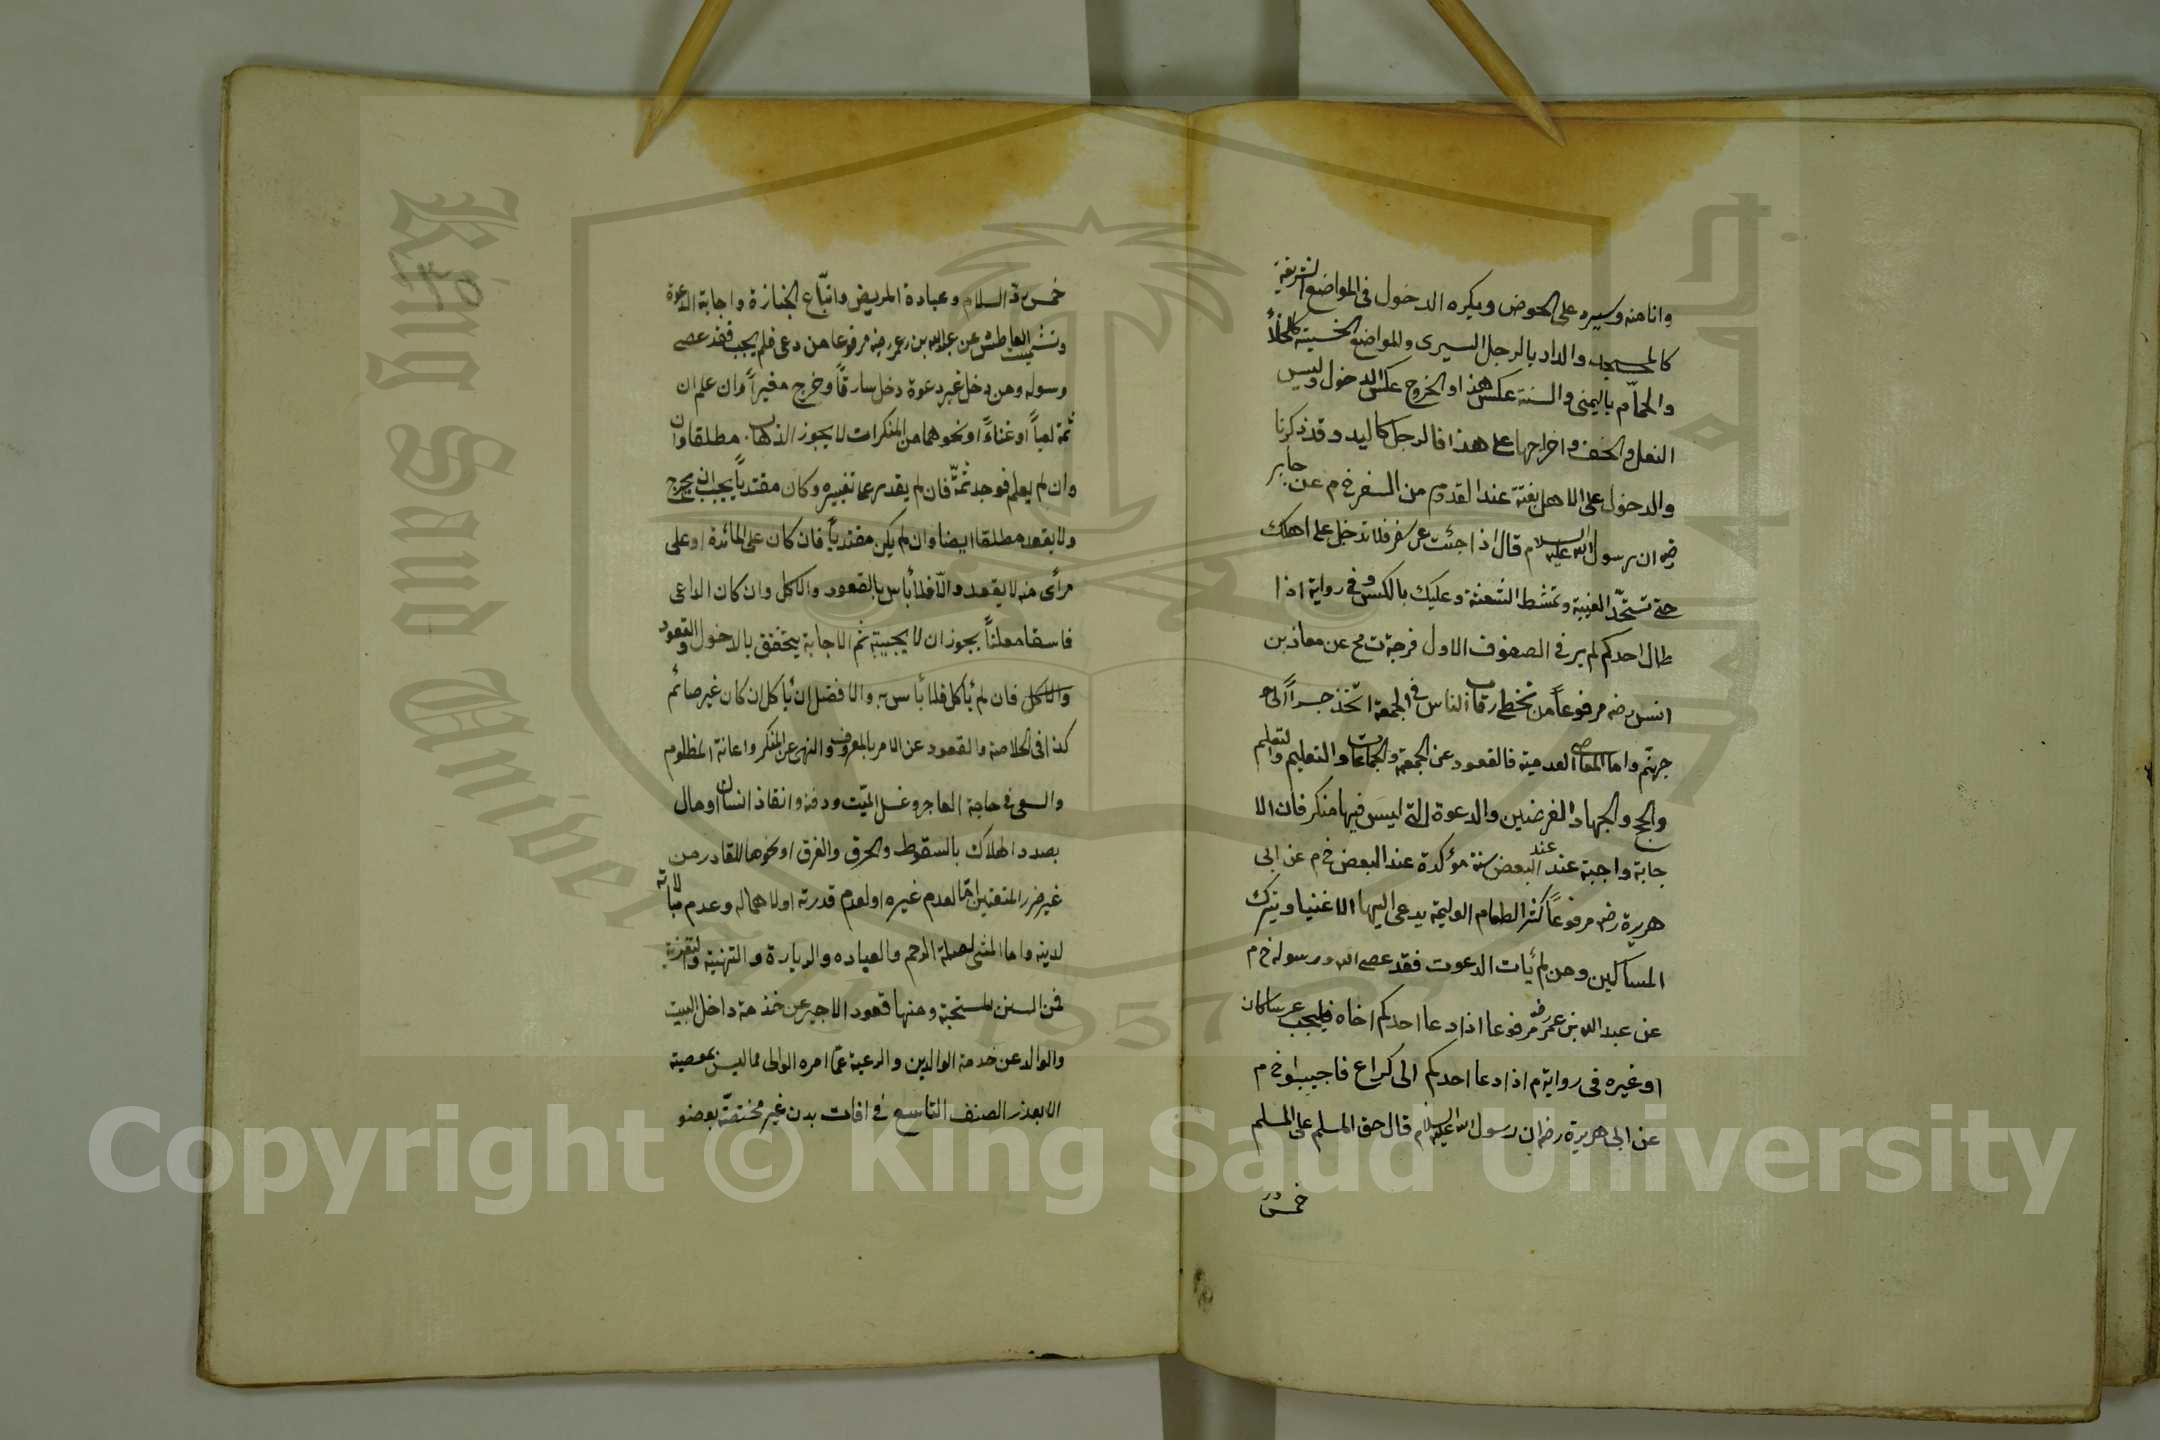 وانامنه وسيره على الحوض ويكره الدخول فى المواضع الشريفة
كالمسجد والدار بالرجل اليسرى والمواضع الخسيسة كالخلأ
والحمّام باليمنى والسنة عكس هذا والخروج عكس الدخول وليس
النعل والخف واخراجها على هذا فالرجل كاليد وقد ذكرنا
والدخول على الاهل بغتة عند القدوم من السفر خ م عن جابر
رضه ان رسول الله عليه السلام قال اذا جئت عن سفر فلا تدخل على اهلك
حتى تستحدّ المغيبة وتمشط الشعثة وعليك بالكيس وفى رواية اذا
طال احدكم لم ير فى الصفوف الاول فرجة ت مح عن معاذ بن
انس رضه مرفوعاً من تخطى رقاب الناس فى الجمعة اتخذ جسراً الى
جهنّم واما المعاصى العدمية فالقعود عن الجمعة والجماعات والتعليم والتعلم
والحج والجهاد المفرضين والدعوة التى ليس فيها منكر فان الا
جابة واجبة عند عند البعض سنة مؤكدة عند البعض خ م عن ابى
هريرة رضه مرفوعاً شر الطعام الوليمة يدعى اليها الاغنيا ويترك
المساكين ومن لم يأت الدعوت فقد عصى الله ورسوله خ م
عن عبد الله بن عمر رضه مرفوعا اذا دعا احدكم اخاه فليجب عرسا كان
اوغيره فى رواية م اذا دعا احدكم الى كراع فاجيبوا خ م
عن ابى هريرة رضه ان رسول الله عليه السلام قال حق المسلم على المسلم
خمس رد
خمس رد السلام وعيادة المريض واتباع الجنازة واجابة الدعوة
وتشميت العاطش عن عبد الله بن عمر رضه مرفوعا من دعى فلم يجب فقد عصى
رسوله ومن دخل غير دعوة دخل سارقاً وخرج مغيراً وان علم ان
ثمة لعباً اوغناءً اونحوهما من المنكرات لا يجوز الذهاب مطلقا وان
وان لم يعلم فوجد ثمّة فان لم يقدر على تغييره وكان مقتدياً يجب ان يخرج
ولا يقعد مطلقا ايضا وان لم يكن مقتدياً فان كان على المائدة اوعلى
مرأى منه لا يقعد والّا فلا بأس بالقعود والاكل وان كان الداعى
فاسقا معلناً يجوز ان لا يجيبته ثم الاجابة يتحقق بالدخول والقعود
والاكل فان لم يأكل فلا بأس به والافضل ان يأكل ان كان غير صائم
كذا فى الخلاصة والقعود عن الامر بالمعروف والنهى عن المنكر واعانة المظلوم
والسعى فى حاجة العاجز وغسل الميّت ودفنه وانقاذ انسان اومال
بصدد الهلاك بالسقوط والحرق والغرق اونحوها للقادر من
غير ضرر المتعين امّا لعدم غيره اولعدم قدرته اولاهماله وعدم مبالاته
لدينه واما المشى لصلة الرحم والعياده والزيارة والتهنية والتعزية
فمن السنن المستحبة ومنها قعود الاجير عن خدمة داخل البيت
والوالد عن خدمة الوالدين والرعية عمّا امره الوالى مما ليس بمعصية
الا بعذر الصنف التاسع فى افات بدن غير مختصّة بعضو
King Saud University
1957
Copyright © King Saud University